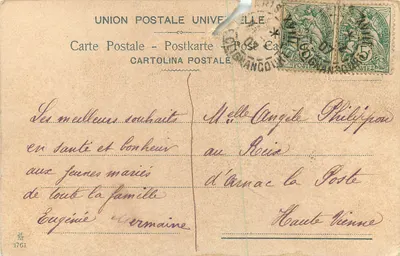 UNION POSTALE UNIVERSELLE
Carte Postale - Postkarte - Post Card
CARTOLINA POSTALE
CLIGNANCOURT
07
Les meilleurs souhaits
en santé et bonheur
aux jeunes mariés
de toute la famille
Eugénie Germaine
Melle Angèle Philippon
au
d'Arnac la Poste
Haute Vienne
1761